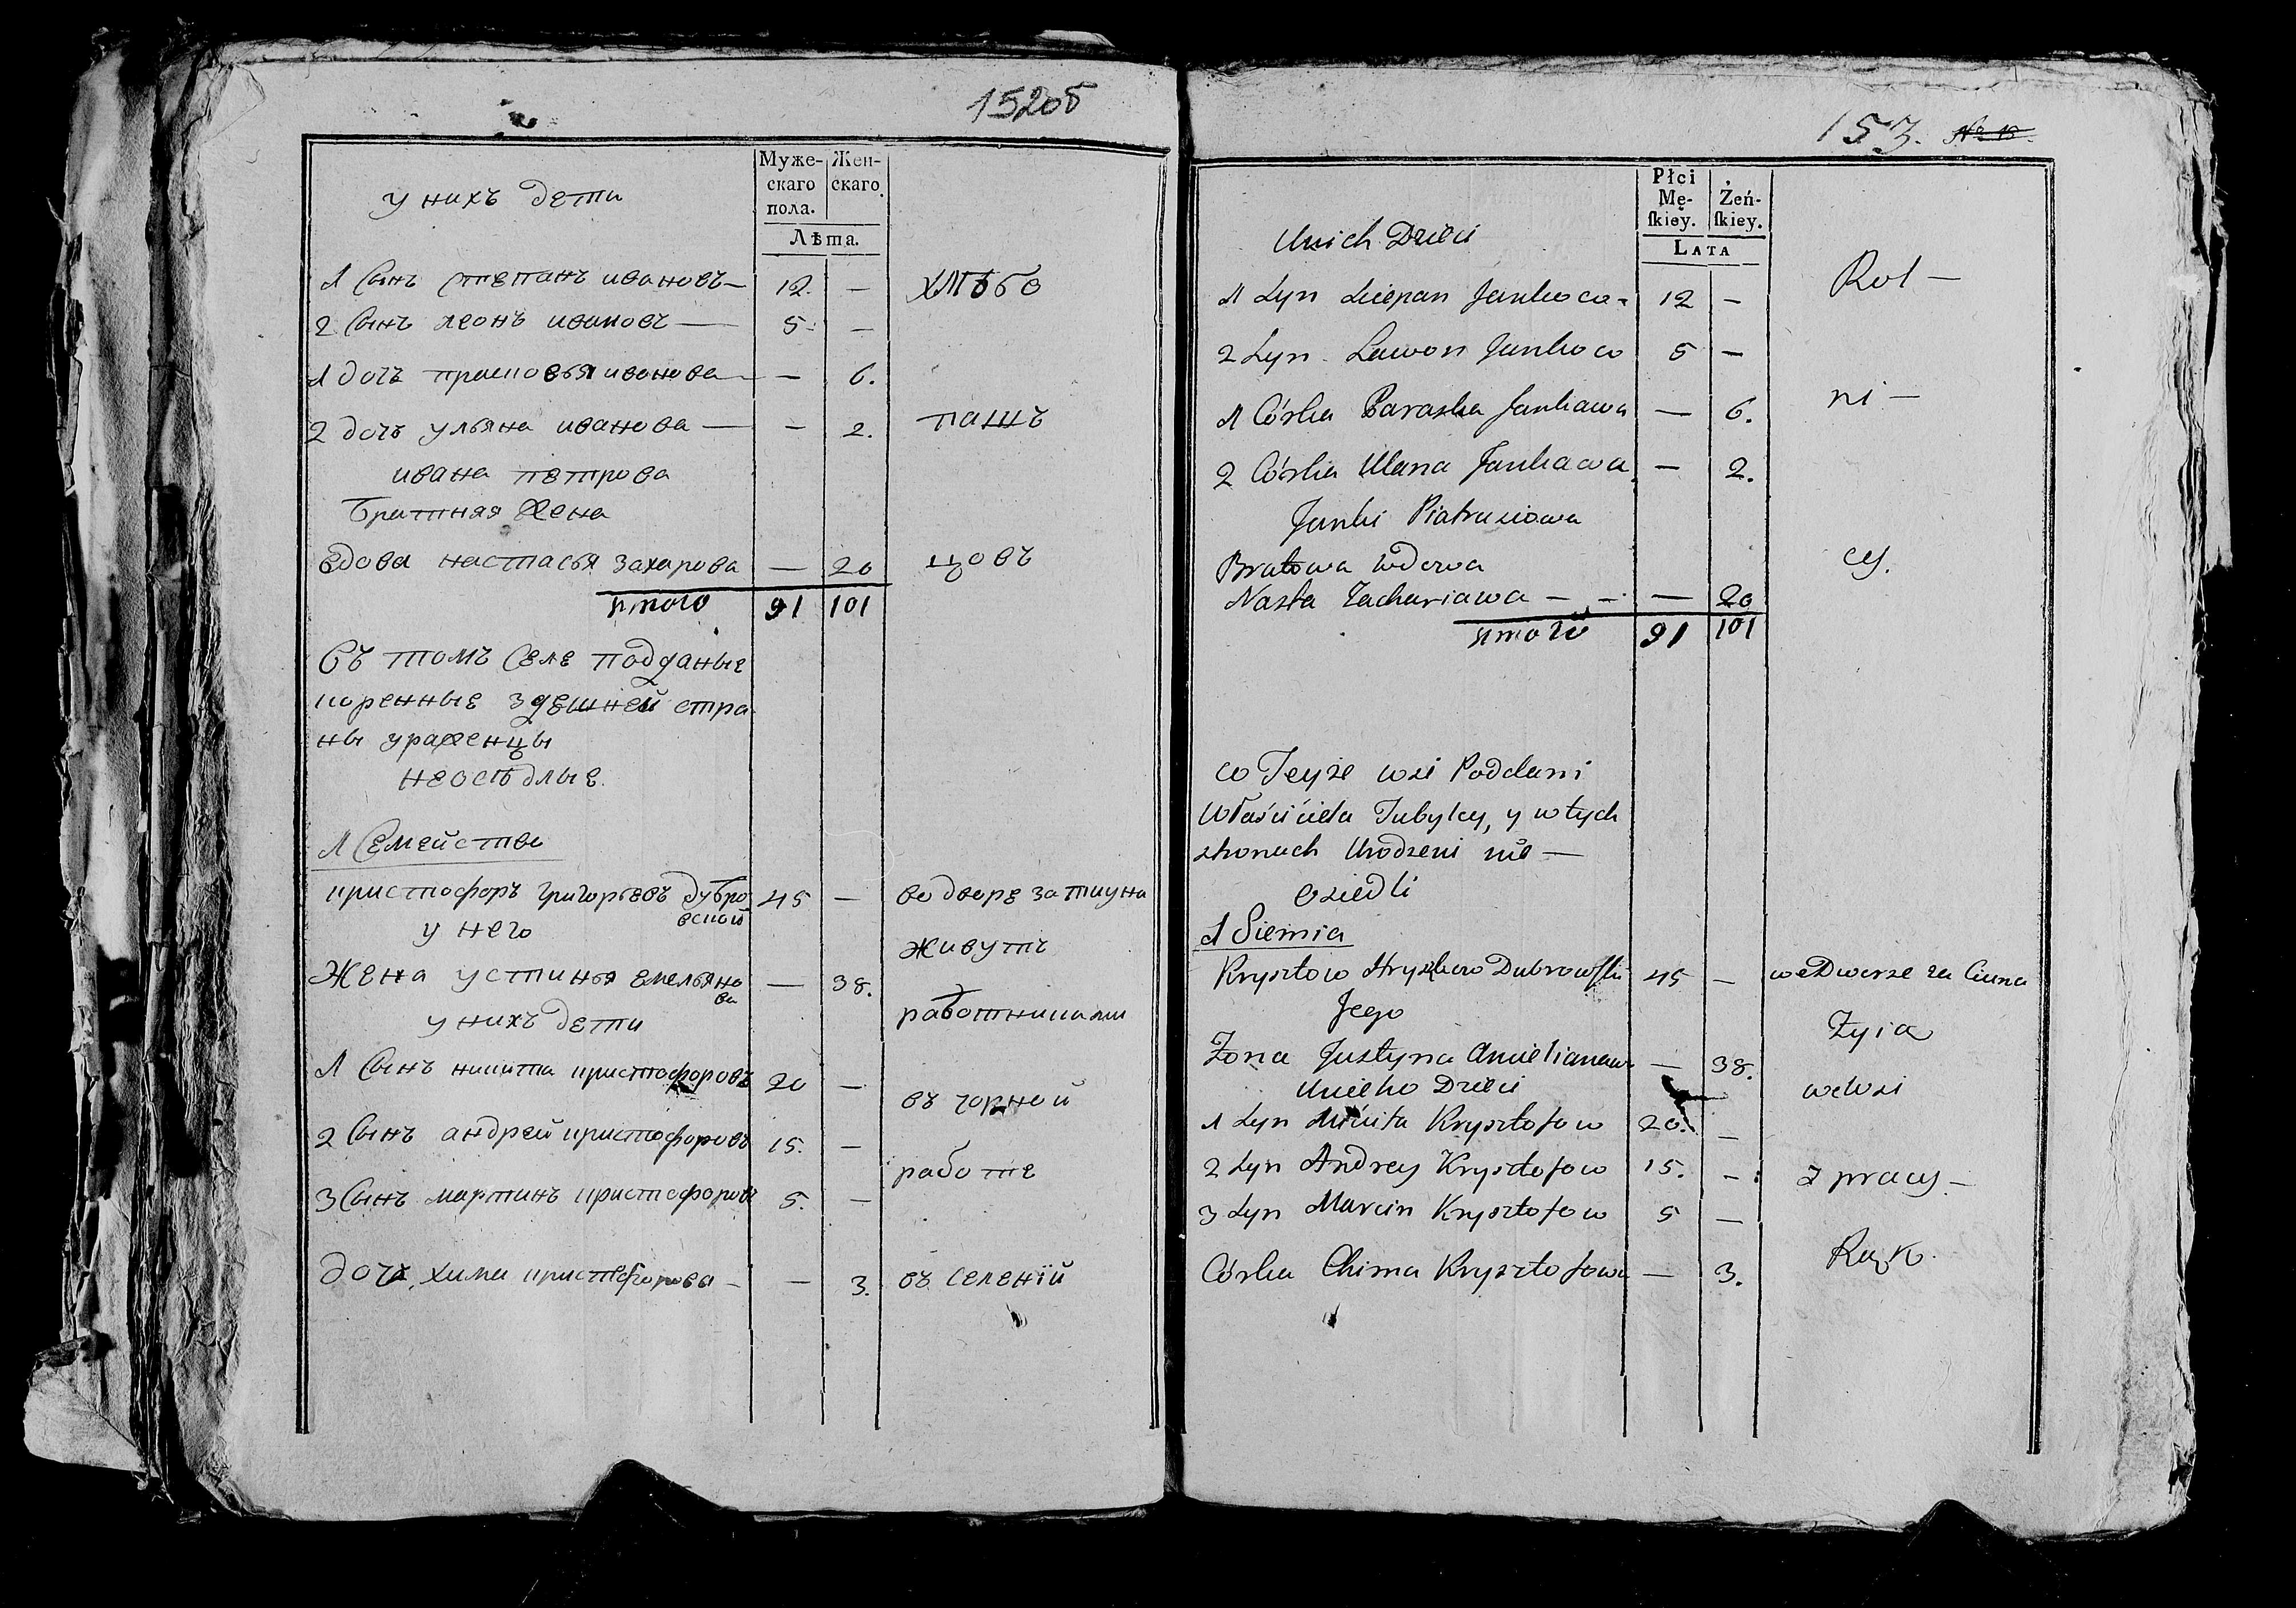 152об
у нихъ дети
Муже-
скаго
пола.
Жен-
скаго.
Лѣта.
1 Сынъ степанъ ивановъ — 12. — хлѣбо
2 Сынъ леонъ ивановъ — 5. —
1 дочь прасковья иванова — — 6.
2 дочь ульяна иванова — — 2. пашъ
ивана петрова
братняя жена
вдова настасья захарова — 20 цовъ
итого 91 101
Въ томъ селе подданые
коренные здешней стра
ны уроженцы
неоседлые.
1 Семейство
кристофоръ григорьевъ дубро
вской 45 — во дворе за тиуна
у него
живутъ
Жена устинья емельяно
ва — 38.
работниками
у нихъ дети
1 Сынъ никита кристофоровъ 20 —
въ чорной
2 Сынъ андрей кристофоровъ 15. —
работе
3 Сынъ мартинъ кристофоровъ 5. —
дочь хима кристофорова — — 3. въ селенiй
153. № 18
Płci
Mę-
skiey.
Żeń-
skiey.
Lata
Unich Dzieci
Rol —
1 Syn Sciepan Jankow - 12 —
2 Syn Lawon Jankow 5 —
1 Córka Paraska Jankawa — 6. ni —
2 Córka Ulana Jankawa — 2.
Janki Piatrusiowa
Bratowa wdowa
cy.
Nasta Zachariawa — — — 20
итого 91 101
w Teyże wsi Poddani
Właściciela Tubylcy, y w tych
stronach Urodzeni nie —
osiedli
1 Siemia
Krysztow Hryszkow Dubrowski 45 — we Dworze za Ciuna
Jego
Żyia
Żona Justyna Amielianawa — 38.
Unicho Dzieci
we wsi
1 Syn Mikita Krysztofow 20. —
2 Syn Andrey Krysztofow 15. — z pracy —
3 Syn Marcin Krysztofow 5 —
Rąk.
Córka Chima Krysztofowa — 3.